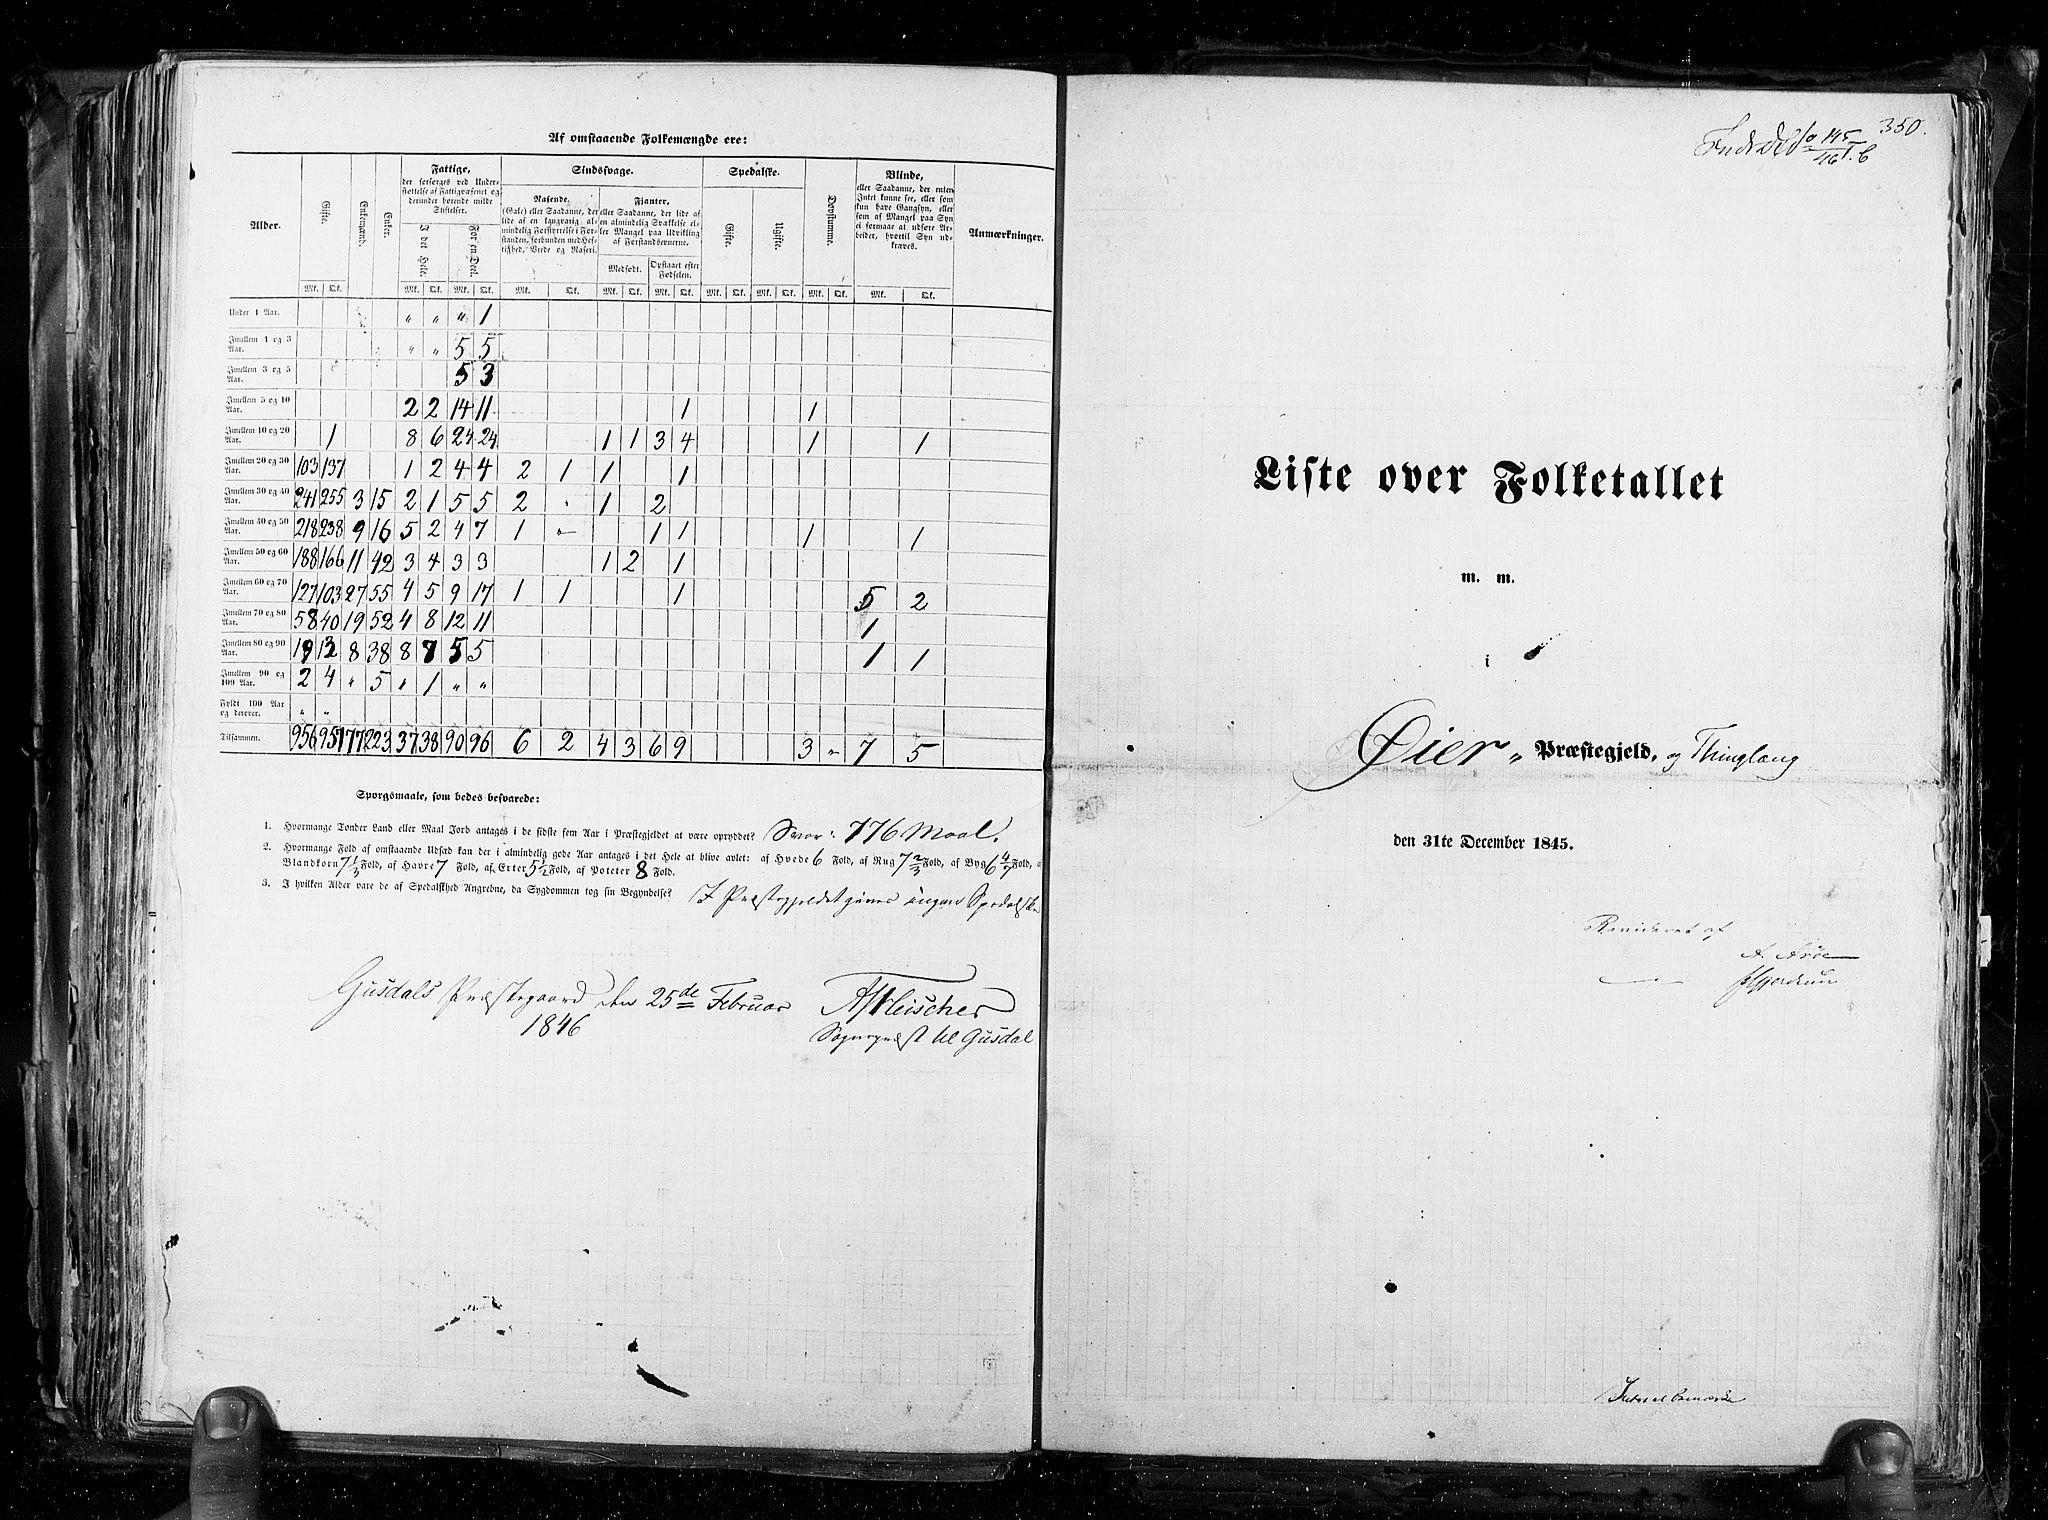 Af omstaaende Folkemængde ere:
Alder.
Gifte.
Enkemænd.
Enker.
Fattige,
der forsørges ved Under-
støttelse af Fattigvæsenet og
derunder hørende milde
Stiftelser.
I det Hele.
For en Deel.
Sindssvage.
Rasende.
(Gale) eller Saadanne, der
lide af en langvarig al-
mindelig Forstyrrelse i For-
standen, forbunden med Hef-
tighed, Vrede og Raseri.
Fjanter,
eller Saadanne, der lide af
en almindelig Svækkelse el-
ler Mangel paa Udvikling
af Forstandsevnerne.
Medfødt.
Opstaaet efter
Fødselen.
Spedalske.
Gifte.
Ugifte.
Døvstumme.
Blinde,
eller Saadanne, der enten
Intet kunne see, eller som
kun have Gangsyn, eller
som af Mangel paa Syn
ei formaae at udføre Ar-
beider, hvortil Syn ud-
kræves.
Anmærkninger.
Mk. Qk. Mk. Qk. Mk. Qk. Mk. Qk. Mk. Qk. Mk. Qk. Mk. Qk. Mk. Qk. Mk. Qk. Mk. Qk.
Under 1 Aar. " " " 1
Imellem 1 og 3 Aar. " " 5 5
Imellem 3 og 5 Aar. 5 3
Imellem 5 og 10 Aar. 2 2 14 11 1 1
Imellem 10 og 20 Aar. 1 8 6 24 24 1 1 3 4 1 1
Imellem 20 og 30 Aar. 103 137 1 2 4 4 2 1 1 1
Imellem 30 og 40 Aar. 241 255 3 15 2 1 5 5 2 " 1 2
Imellem 40 og 50 Aar. 218 238 9 16 5 2 4 7 1 " 1 1 1 1
Imellem 50 og 60 Aar. 188 166 11 42 3 4 3 3 1 2 1
Imellem 60 og 70 Aar. 127 103 27 55 4 5 9 17 1 1 1 5 2
Imellem 70 og 80 Aar. 58 40 19 52 4 8 12 11 1
Imellem 80 og 90 Aar. 19 12 8 38 8 7 5 5 1 1
Imellem 90 og 100 Aar. 2 4 " 5 " 1 " "
Fyldt 100 Aar og derover. " "
Tilsammen. 956 951 77 223 37 38 90 96 6 2 4 3 6 9 3 " 7 5
Spørgsmaale, som bedes besvarede:
1. Hvormange Tønder Land eller Maal Jord antages i de sidste fem Aar i Præstegjeldet at være opryddet? Svar: 776 Maal.
2. Hvormange Fold af omstaaende Udsæd kan der i almindelig gode Aar antages i det Hele at blive avlet: af Hvede 6 Fold, af Rug 7 2/3 Fold, af Byg 6 4/7 Fold, a
Blandkorn 7 1/3 Fold, af Havre 7 Fold, af Erter 5 1/2 Fold, af Poteter 8 Fold.
3. I hvilken Alder vare de af Spedalskhed Angrebne, da Sygdommen tog sin Begyndelse? I Præstegjeldet gives ingen Spedalske
Gusdals Præstegaard den 25de Februar
1846
A Fleischer
Sognepræst til Gusdal
350.
Liste over Folketallet
m. m.
i
Øier " Præstegjeld, og Thinglaug
den 31te December 1845.
Revideret af